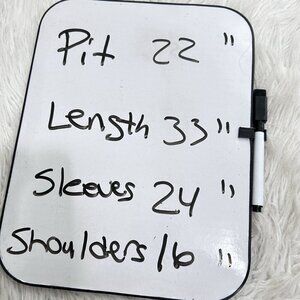 Pit 22"
Length 33"
Sleeves 24"
Shoulders 16"